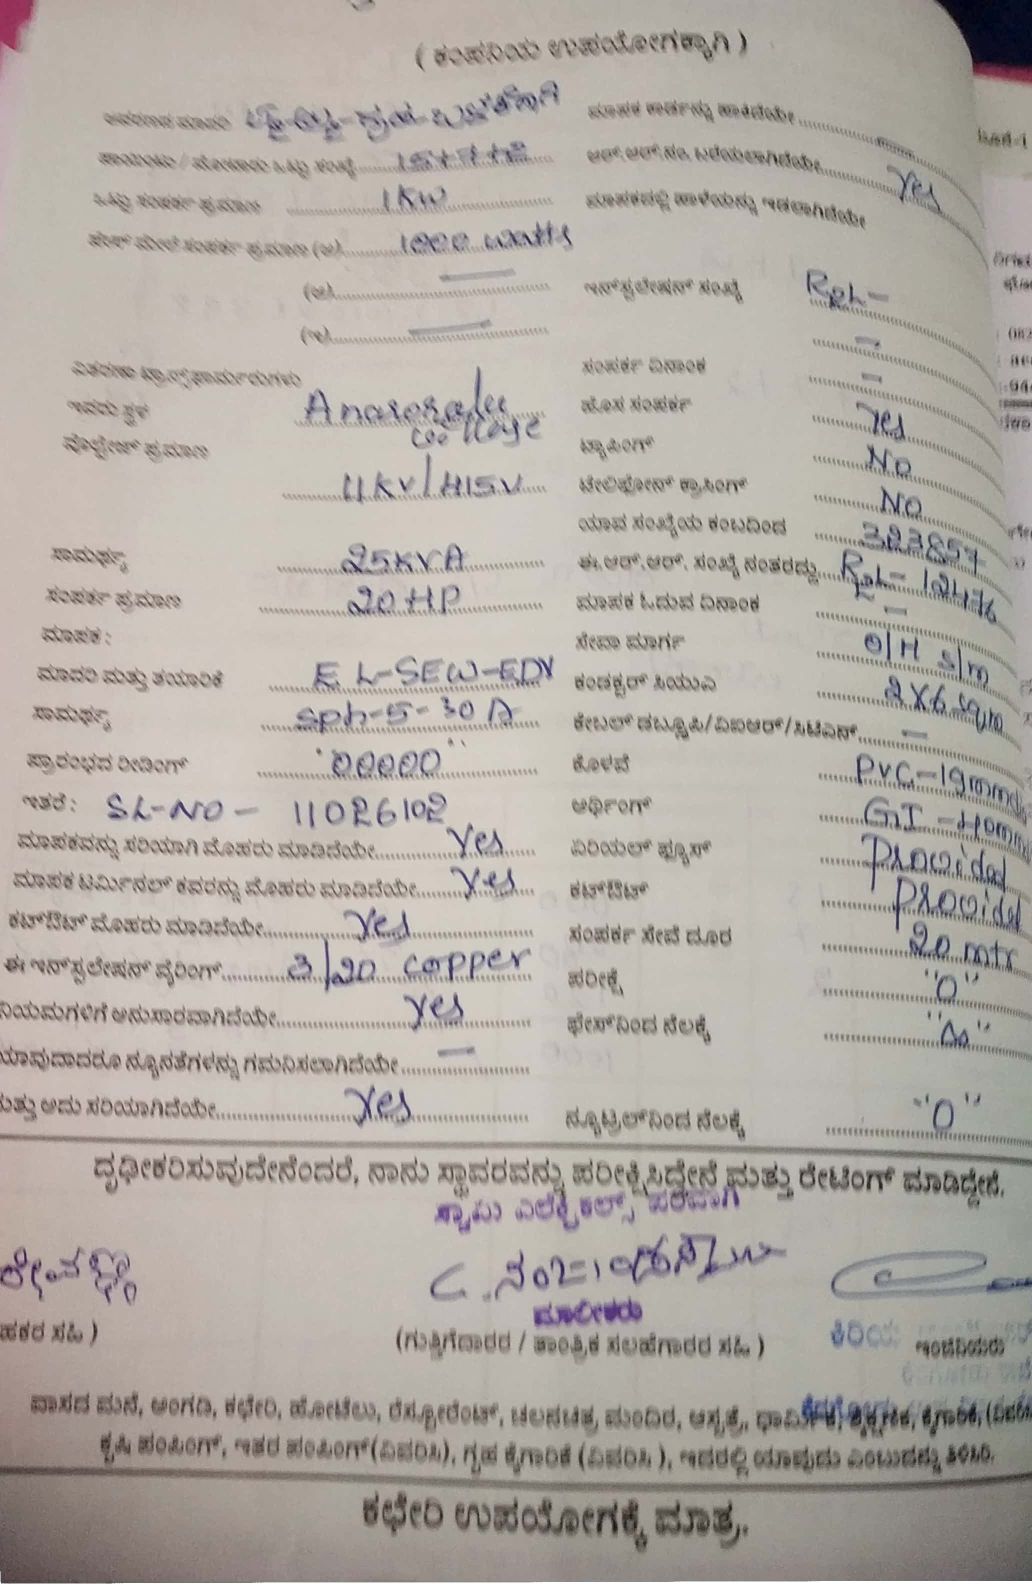 ( ಕಂಪನಿಯ ಉಪಯೋಗಕ್ಕಾಗಿ )
ಮಾಪಕ ಕಾರ್ಡನ್ನು ಹಾಕಿದೆಯೇ
ಆವರಣದ ಮಾದರಿ
ಪಾಯಿಂಟು / ಮೋಟಾರು ಒಟ್ಟು ಸಂಖ್ಯೆ 15+7+2
ಆರ್.ಆರ್.ನಂ. ಬರೆಯಲಾಗಿದೆಯೇ Yes
ಒಟ್ಟು ಸಂಪರ್ಕ ಪ್ರಮಾಣ 1KW
ಮಾಪಕದಲ್ಲಿ ಹಾಳೆಯನ್ನು ಇಡಲಾಗಿದೆಯೇ
ಸಂಪರ್ಕ ಪ್ರಮಾಣ (ಅ) 1000 watts
(ಆ) —
ಇನ್‌ಸ್ಟಲೇಷನ್ ಸಂಖ್ಯೆ RPL—
(ಇ) —
—
ವಿತರಣಾ ಟ್ರಾನ್ಸ್‌ಫಾರ್ಮರುಗಳು
ಸಂಪರ್ಕ ದಿನಾಂಕ —
ಇರುವ ಸ್ಥಳ
ಹೊಸ ಸಂಪರ್ಕ Yes
ವೋಲ್ಟೇಜ್ ಪ್ರಮಾಣ
ಟ್ಯಾಪಿಂಗ್ NO
11KV/415V
ಟೆಲಿಫೋನ್ ಕ್ರಾಸಿಂಗ್ NO
ಯಾವ ಸಂಖ್ಯೆಯ ಕಂಬದಿಂದ 323857
ಸಾಮರ್ಥ್ಯ 25KVA
ಈ.ಆರ್.ಆರ್. ಸಂಖ್ಯೆ ನಂತರದ್ದು RPL-12476
ಸಂಪರ್ಕ ಪ್ರಮಾಣ 20 HP
ಮಾಪಕ ಓದುವ ದಿನಾಂಕ —
ಮಾಪಕ :
ಸೇವಾ ಮಾರ್ಗ O/H s/m
ಮಾದರಿ ಮತ್ತು ತಯಾರಿಕೆ EL-SEW-EDV
ಕಂಡಕ್ಟರ್ ಸಿಯುಎ 2X6 sqm
ಸಾಮರ್ಥ್ಯ sph-5-30A
ಕೇಬಲ್ ಡಬ್ಲ್ಯೂಪಿ/ವಿಐಆರ್/ಸಿಟಿಎಸ್ —
ಪ್ರಾರಂಭದ ರೀಡಿಂಗ್ "00000"
ಕೊಳವೆ PVC-19mm
ಇತರೆ : SL-NO- 11026102
ಅರ್ಥಿಂಗ್ GI-40mm
ಮಾಪಕವನ್ನು ಸರಿಯಾಗಿ ಮೊಹರು ಮಾಡಿದೆಯೇ Yes
ಏರಿಯಲ್ ಫ್ಯೂಸ್ Provided
ಮಾಪಕ ಟರ್ಮಿನಲ್ ಕವರನ್ನು ಮೊಹರು ಮಾಡಿದೆಯೇ Yes
ಕಟ್‌ಔಟ್ Provided
ಕಟ್‌ಔಟ್ ಮೊಹರು ಮಾಡಿದೆಯೇ Yes
ಸಂಪರ್ಕ ಸೇವೆ ದೂರ 20 mtr
ಈ ಇನ್‌ಸ್ಟಲೇಷನ್ ವೈರಿಂಗ್ 3/20 copper
ಪರೀಕ್ಷೆ "0"
ನಿಯಮಗಳಿಗೆ ಅನುಸಾರವಾಗಿದೆಯೇ Yes
ಫೇಸ್‌ನಿಂದ ನೆಲಕ್ಕೆ
ಯಾವುದಾದರೂ ನ್ಯೂನತೆಗಳನ್ನು ಗಮನಿಸಲಾಗಿದೆಯೇ —
ಮತ್ತು ಅದು ಸರಿಯಾಗಿದೆಯೇ Yes
ನ್ಯೂಟ್ರಲ್‌ನಿಂದ ನೆಲಕ್ಕೆ "0"
ದೃಢೀಕರಿಸುವುದೇನೆಂದರೆ, ನಾನು ಸ್ಥಾವರವನ್ನು ಪರೀಕ್ಷಿಸಿದ್ದೇನೆ ಮತ್ತು ರೇಟಿಂಗ್ ಮಾಡಿದ್ದೇನೆ.
ಎಲೆಕ್ಟ್ರಿಕಲ್ಸ್ ಪರವಾಗಿ
ಮಾಲೀಕರು
ಸಹಿ )
(ಗುತ್ತಿಗೆದಾರರ / ತಾಂತ್ರಿಕ ಸಲಹೆಗಾರರ ಸಹಿ )
ಕಿರಿಯ ಇಂಜಿನಿಯರು
ವಾಸದ ಮನೆ, ಅಂಗಡಿ, ಕಛೇರಿ, ಹೋಟೆಲು, ರೆಸ್ಟೋರೆಂಟ್, ಚಲನಚಿತ್ರ ಮಂದಿರ, ಆಸ್ಪತ್ರೆ, ಧಾರ್ಮಿಕ, ಶೈಕ್ಷಣಿಕ, ಕೈಗಾರಿಕೆ,
ಕೃಷಿ ಪಂಪಿಂಗ್, ಇತರ ಪಂಪಿಂಗ್ (ವಿವರಿಸಿ), ಗೃಹ ಕೈಗಾರಿಕೆ (ವಿವರಿಸಿ ), ಇದರಲ್ಲಿ ಯಾವುದು ಎಂಬುದನ್ನು ತಿಳಿಸಿರಿ.
ಕಛೇರಿ ಉಪಯೋಗಕ್ಕೆ ಮಾತ್ರ.